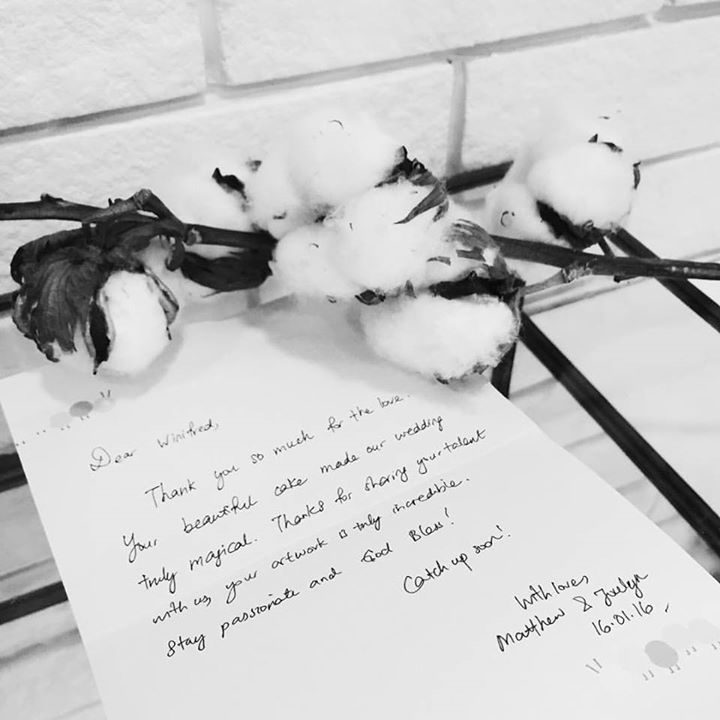 Dear Winifred,
Thank you so much for the love.
Your beautiful cake made our wedding
truly magical. Thanks for sharing your talent
with us, your artwork is truly incredible.
Stay passionate and God Bless!
Catch up soon!
With love,
Matthew & Joelyn
16.01.16